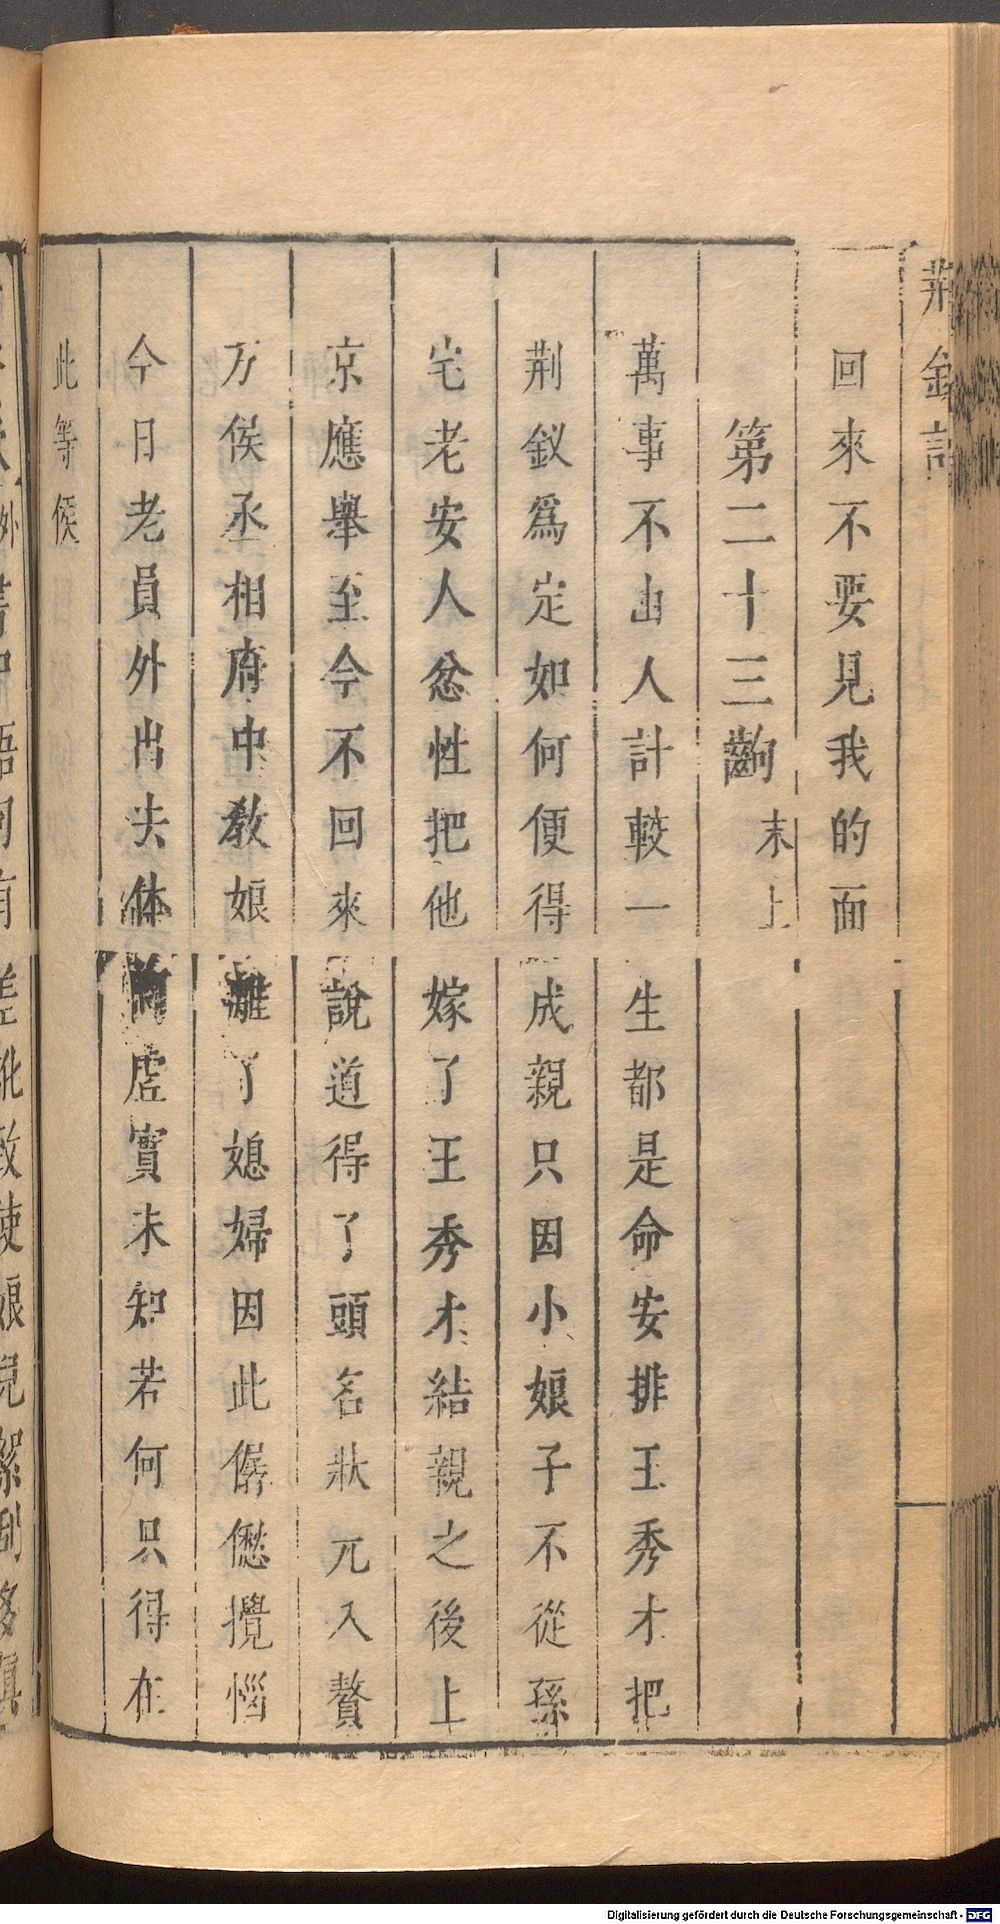 荆釵記
回來不要見我的面
第二十三齣 末上
萬事不由人計較一生都是命安排王秀才把
荆釵爲定如何便得成親只因小娘子不從孫
宅老安人忿性把他嫁了王秀才結親之後上
京應舉至今不回來說道得了頭名狀元入贅
万俟丞相府中教娘離了媳婦因此僝僽攪惱
今日老員外出去体問虗實未知若何只得在
此等候
Digitalisierung gefördert durch die Deutsche Forschungsgemeinschaft - DFG